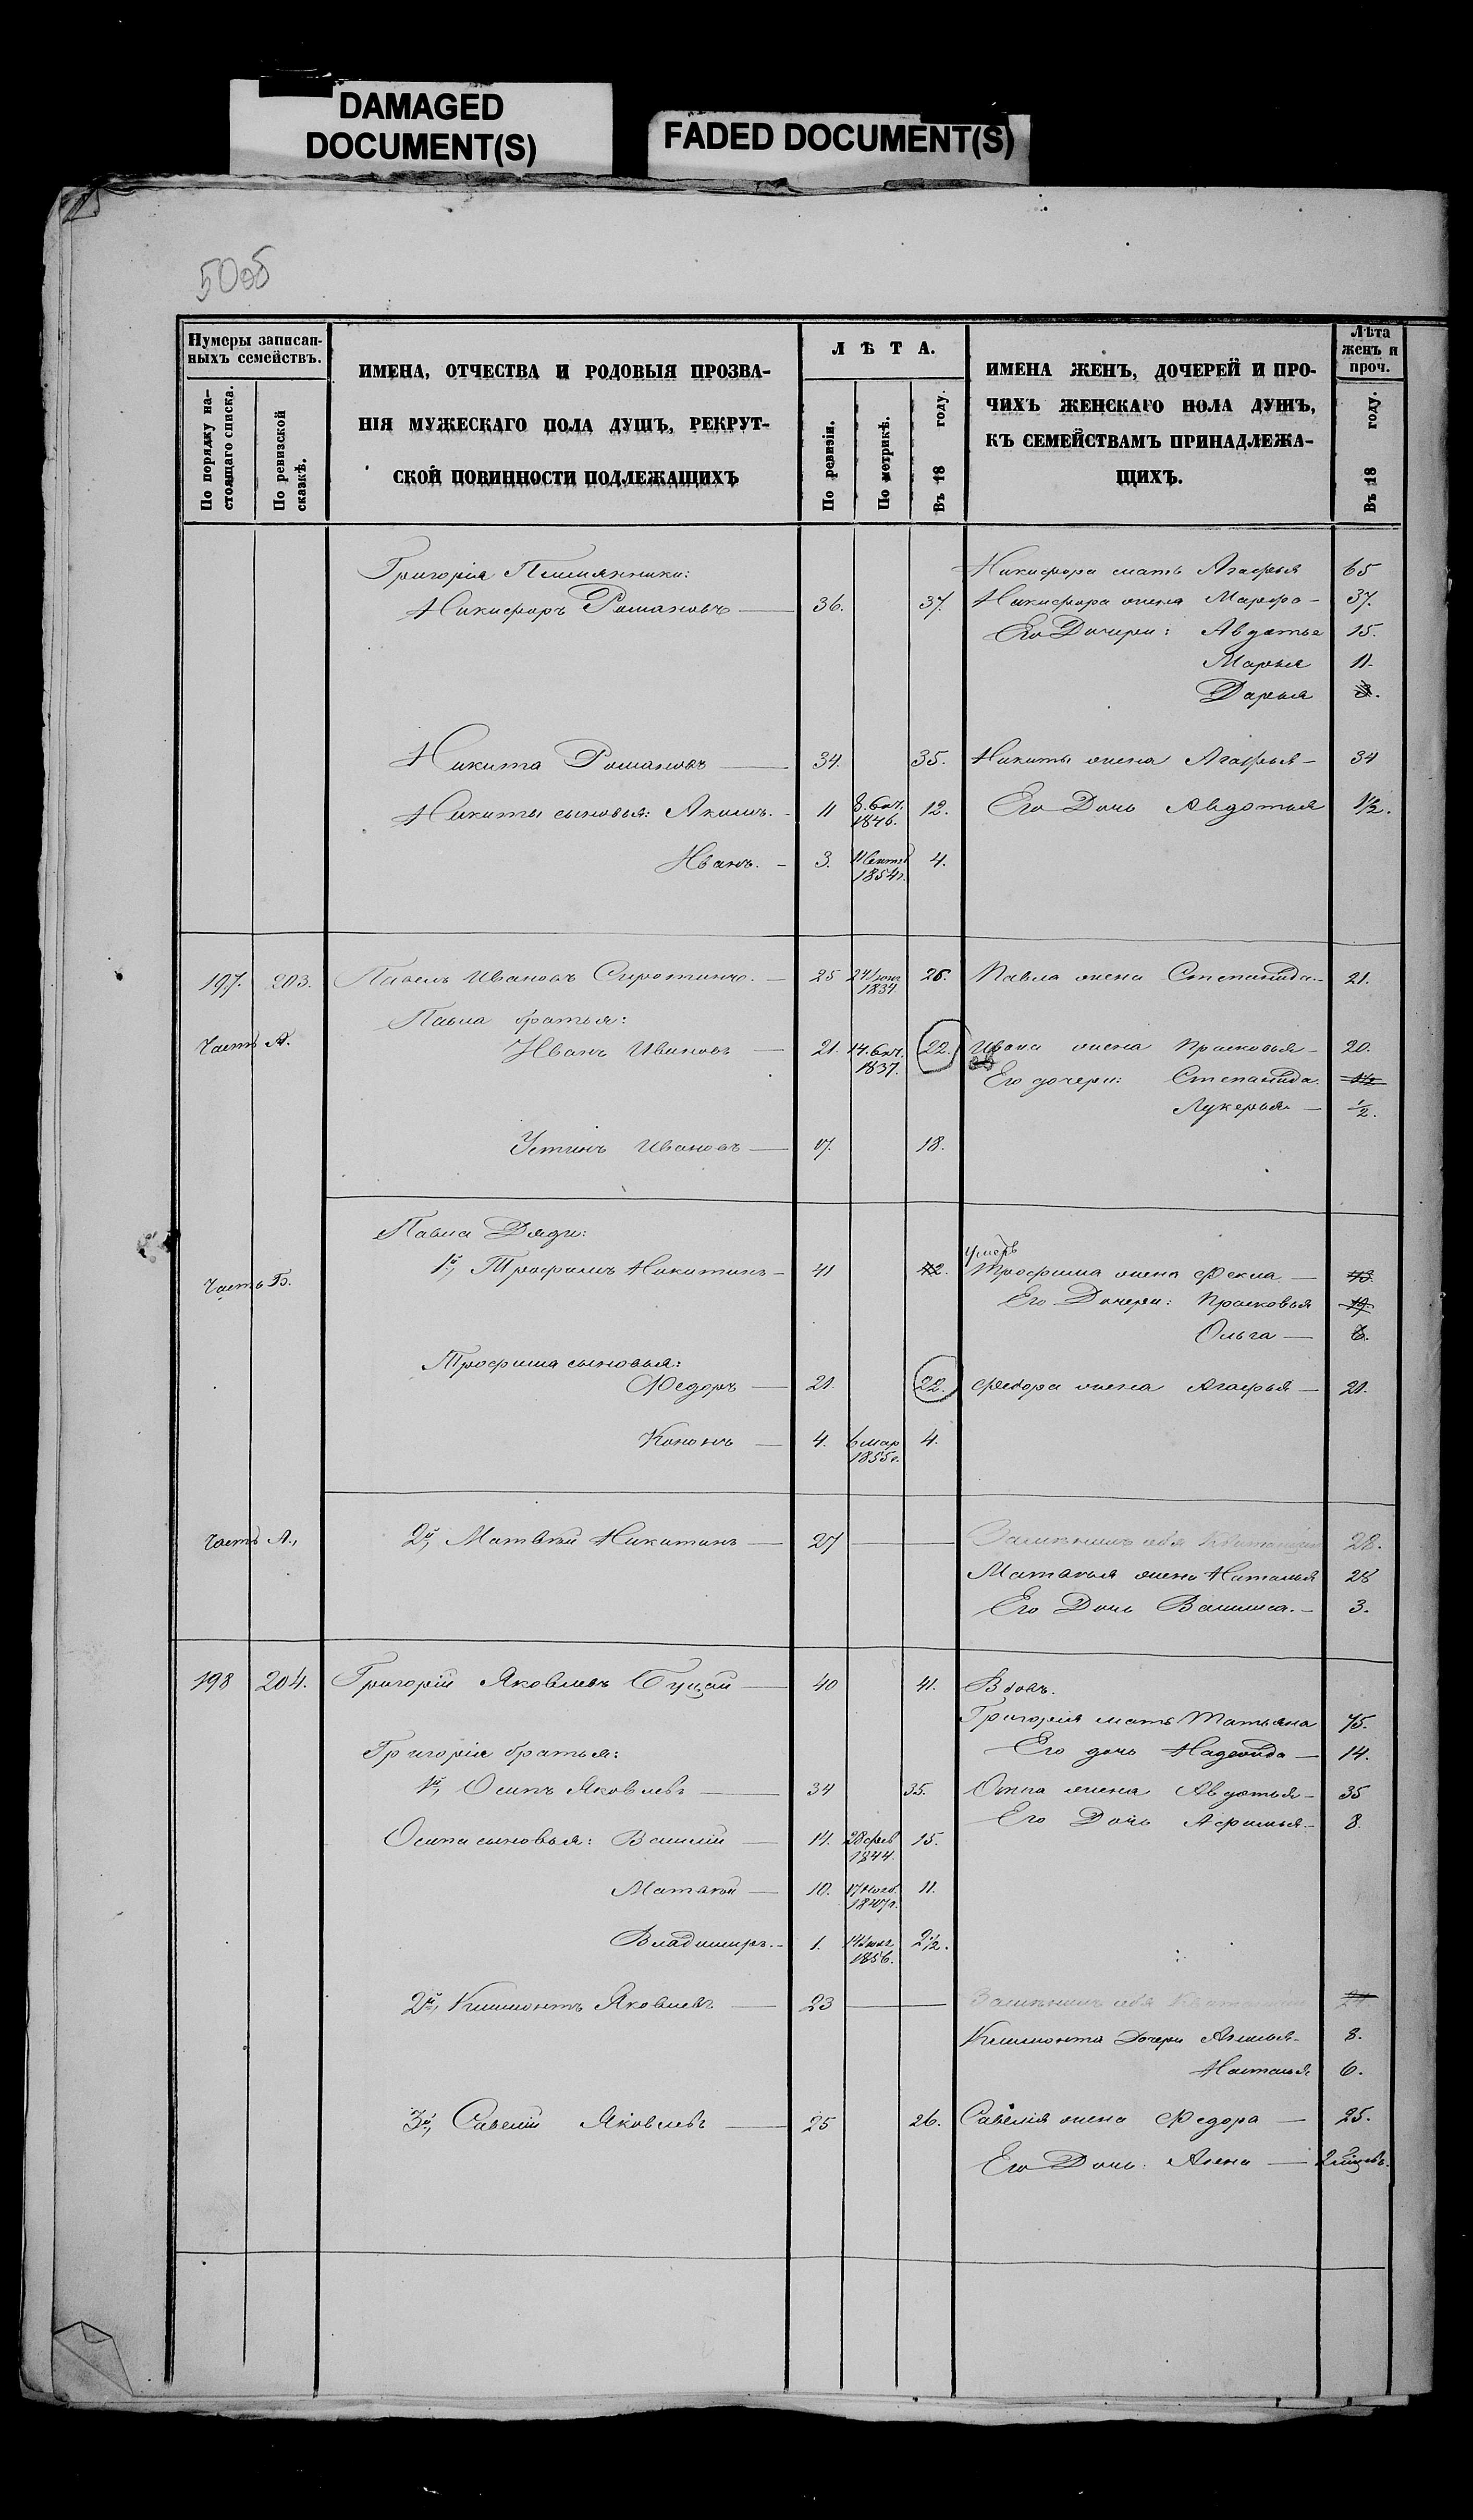 DAMAGED
DOCUMENT(S)
FADED DOCUMENT(S)
50об
Нумеры записан-
ныхъ семействъ.
По порядку на-
стоящаго списка.
По ревизской
сказкѣ.
ИМЕНА, ОТЧЕСТВА И РОДОВЫЯ ПРОЗВА-
НІЯ МУЖЕСКАГО ПОЛА ДУШЪ, РЕКРУТ-
СКОЙ ПОВИННОСТИ ПОДЛЕЖАЩИХЪ
ЛѢТА.
По ревизіи.
По метрикѣ.
Въ 18 году.
ИМЕНА ЖЕНЪ, ДОЧЕРЕЙ И ПРО-
ЧИХЪ ЖЕНСКАГО ПОЛА ДУШЪ,
КЪ СЕМЕЙСТВАМЪ ПРИНАДЛЕЖА-
ЩИХЪ.
Лѣта
женъ и
проч.
Въ 18 году.
Григорія Племянники: Никифора мать Агафья 65
Никифоръ Романовъ 36. 37. Никифора жена Марфа 37.
Его Дочери: Авдотья 15.
Марья 11.
Дарья
Никита Романовъ 34. 35. Никиты жена Агафья 34
Никиты сыновья: Акимъ. 11 1846. 12. Его Дочь Авдотья 1½.
Иванъ. 3. 1854г. 4.
197. 203. Павелъ Ивановъ Сиротинъ. 25 24 1834 26. Павла жена Степанида 21.
Павла братья:
Часть А. Иванъ Ивановъ 21. 14. 1837. 22. Ивана жена Прасковья 20.
Его дочери: Степанида
Лукерья ½.
Устинъ Ивановъ 17. 18.
Павла Дяди:
умеръ
Часть Б. 1й, Трофимъ Никитинъ 41 42. Трофима жена Фекла 43.
Его Дочери: Прасковья 19
Ольга
Трофима сыновья:
Федоръ 21. 22. Федора жена Агафья 21.
Кононъ 4. 6 мар 1855г. 4.
Часть А., 2й, Матвѣй Никитинъ 27 Замѣнилъ себя Квитанціей 28.
Матвѣя жена Наталья 28
Его Дочь Василиса. 3.
198 204. Григорій Яковлевъ Буцкій 40 41. Вдовъ.
Григорія мать Татьяна 75.
Григорія братья: Его дочь Надежда 14.
1й, Осипъ Яковлевъ 34 35. Осипа жена Авдотья 35
Его Дочь Афимья 8.
Осипа сыновья: Василій 14. 28 фев 1844. 15.
Матвѣй 10. 17 Нояб. 1847г. 11.
Владимиръ. 1. 14 Іюля 1856. 2½.
2й, Климонтъ Яковлевъ 23 Замѣнилъ себя Квитанціей 24
Климонта Дочери Акилья 8.
Наталья 6.
3й, Савелій Яковлевъ 25 26. Савелія жена Федора 25.
Его Дочь: Анна 2 мѣсяцъ.